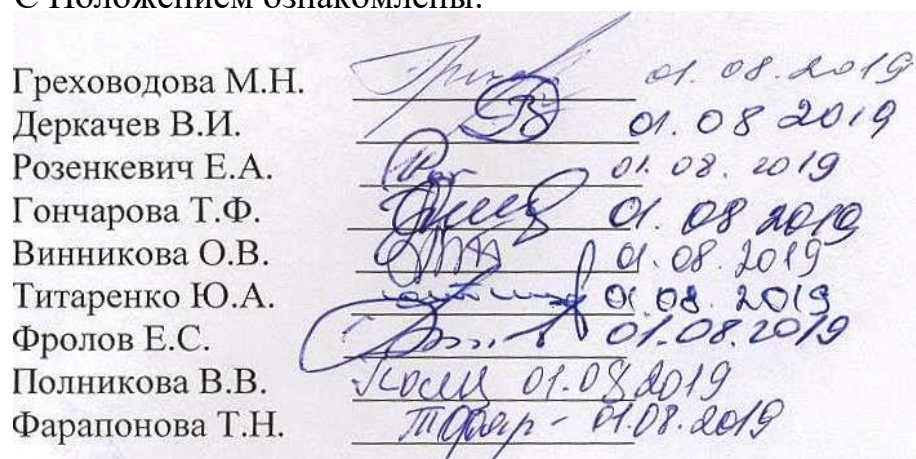 С Положением ознакомлены:
Греховодова М.Н. 01.08.2019
Деркачев В.И. 01.08 2019
Розенкевич Е.А. 01.08.2019
Гончарова Т.Ф. 01.08 2019
Винникова О.В. 01.08.2019
Титаренко Ю.А. 01.08.2019
Фролов Е.С. 01.08.2019
Полникова В.В. 01.08.2019
Фарапонова Т.Н. 01.08.2019